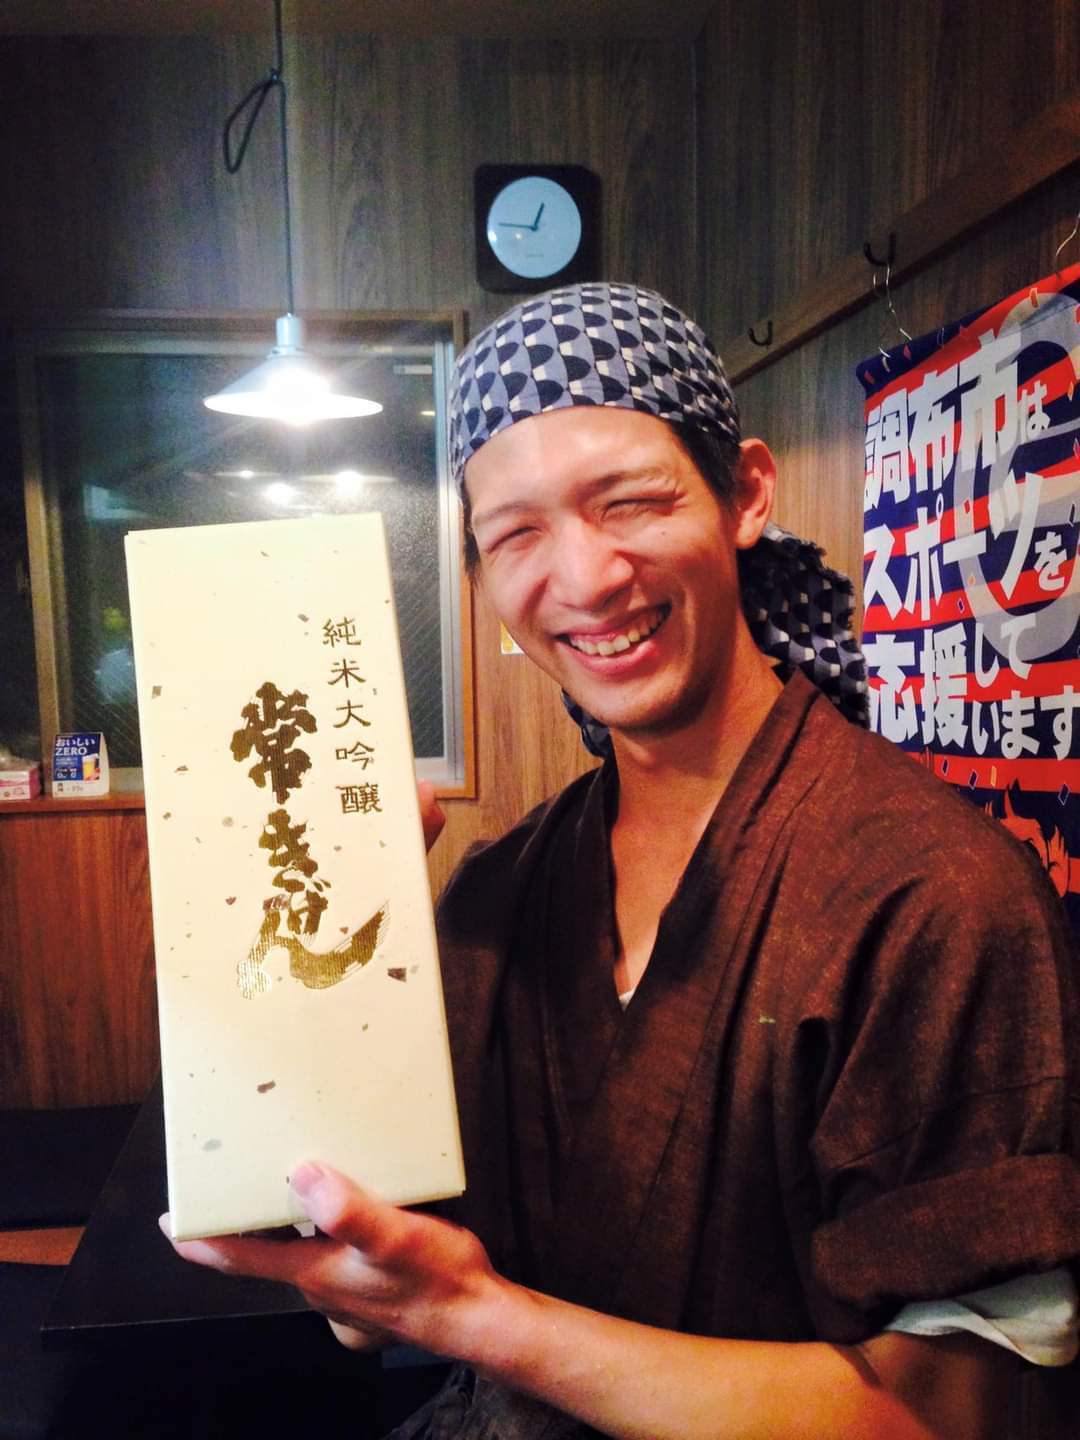 純米大吟醸
常きげん
調布市は
スポーツを
応援して
います
おいしい
ZERO